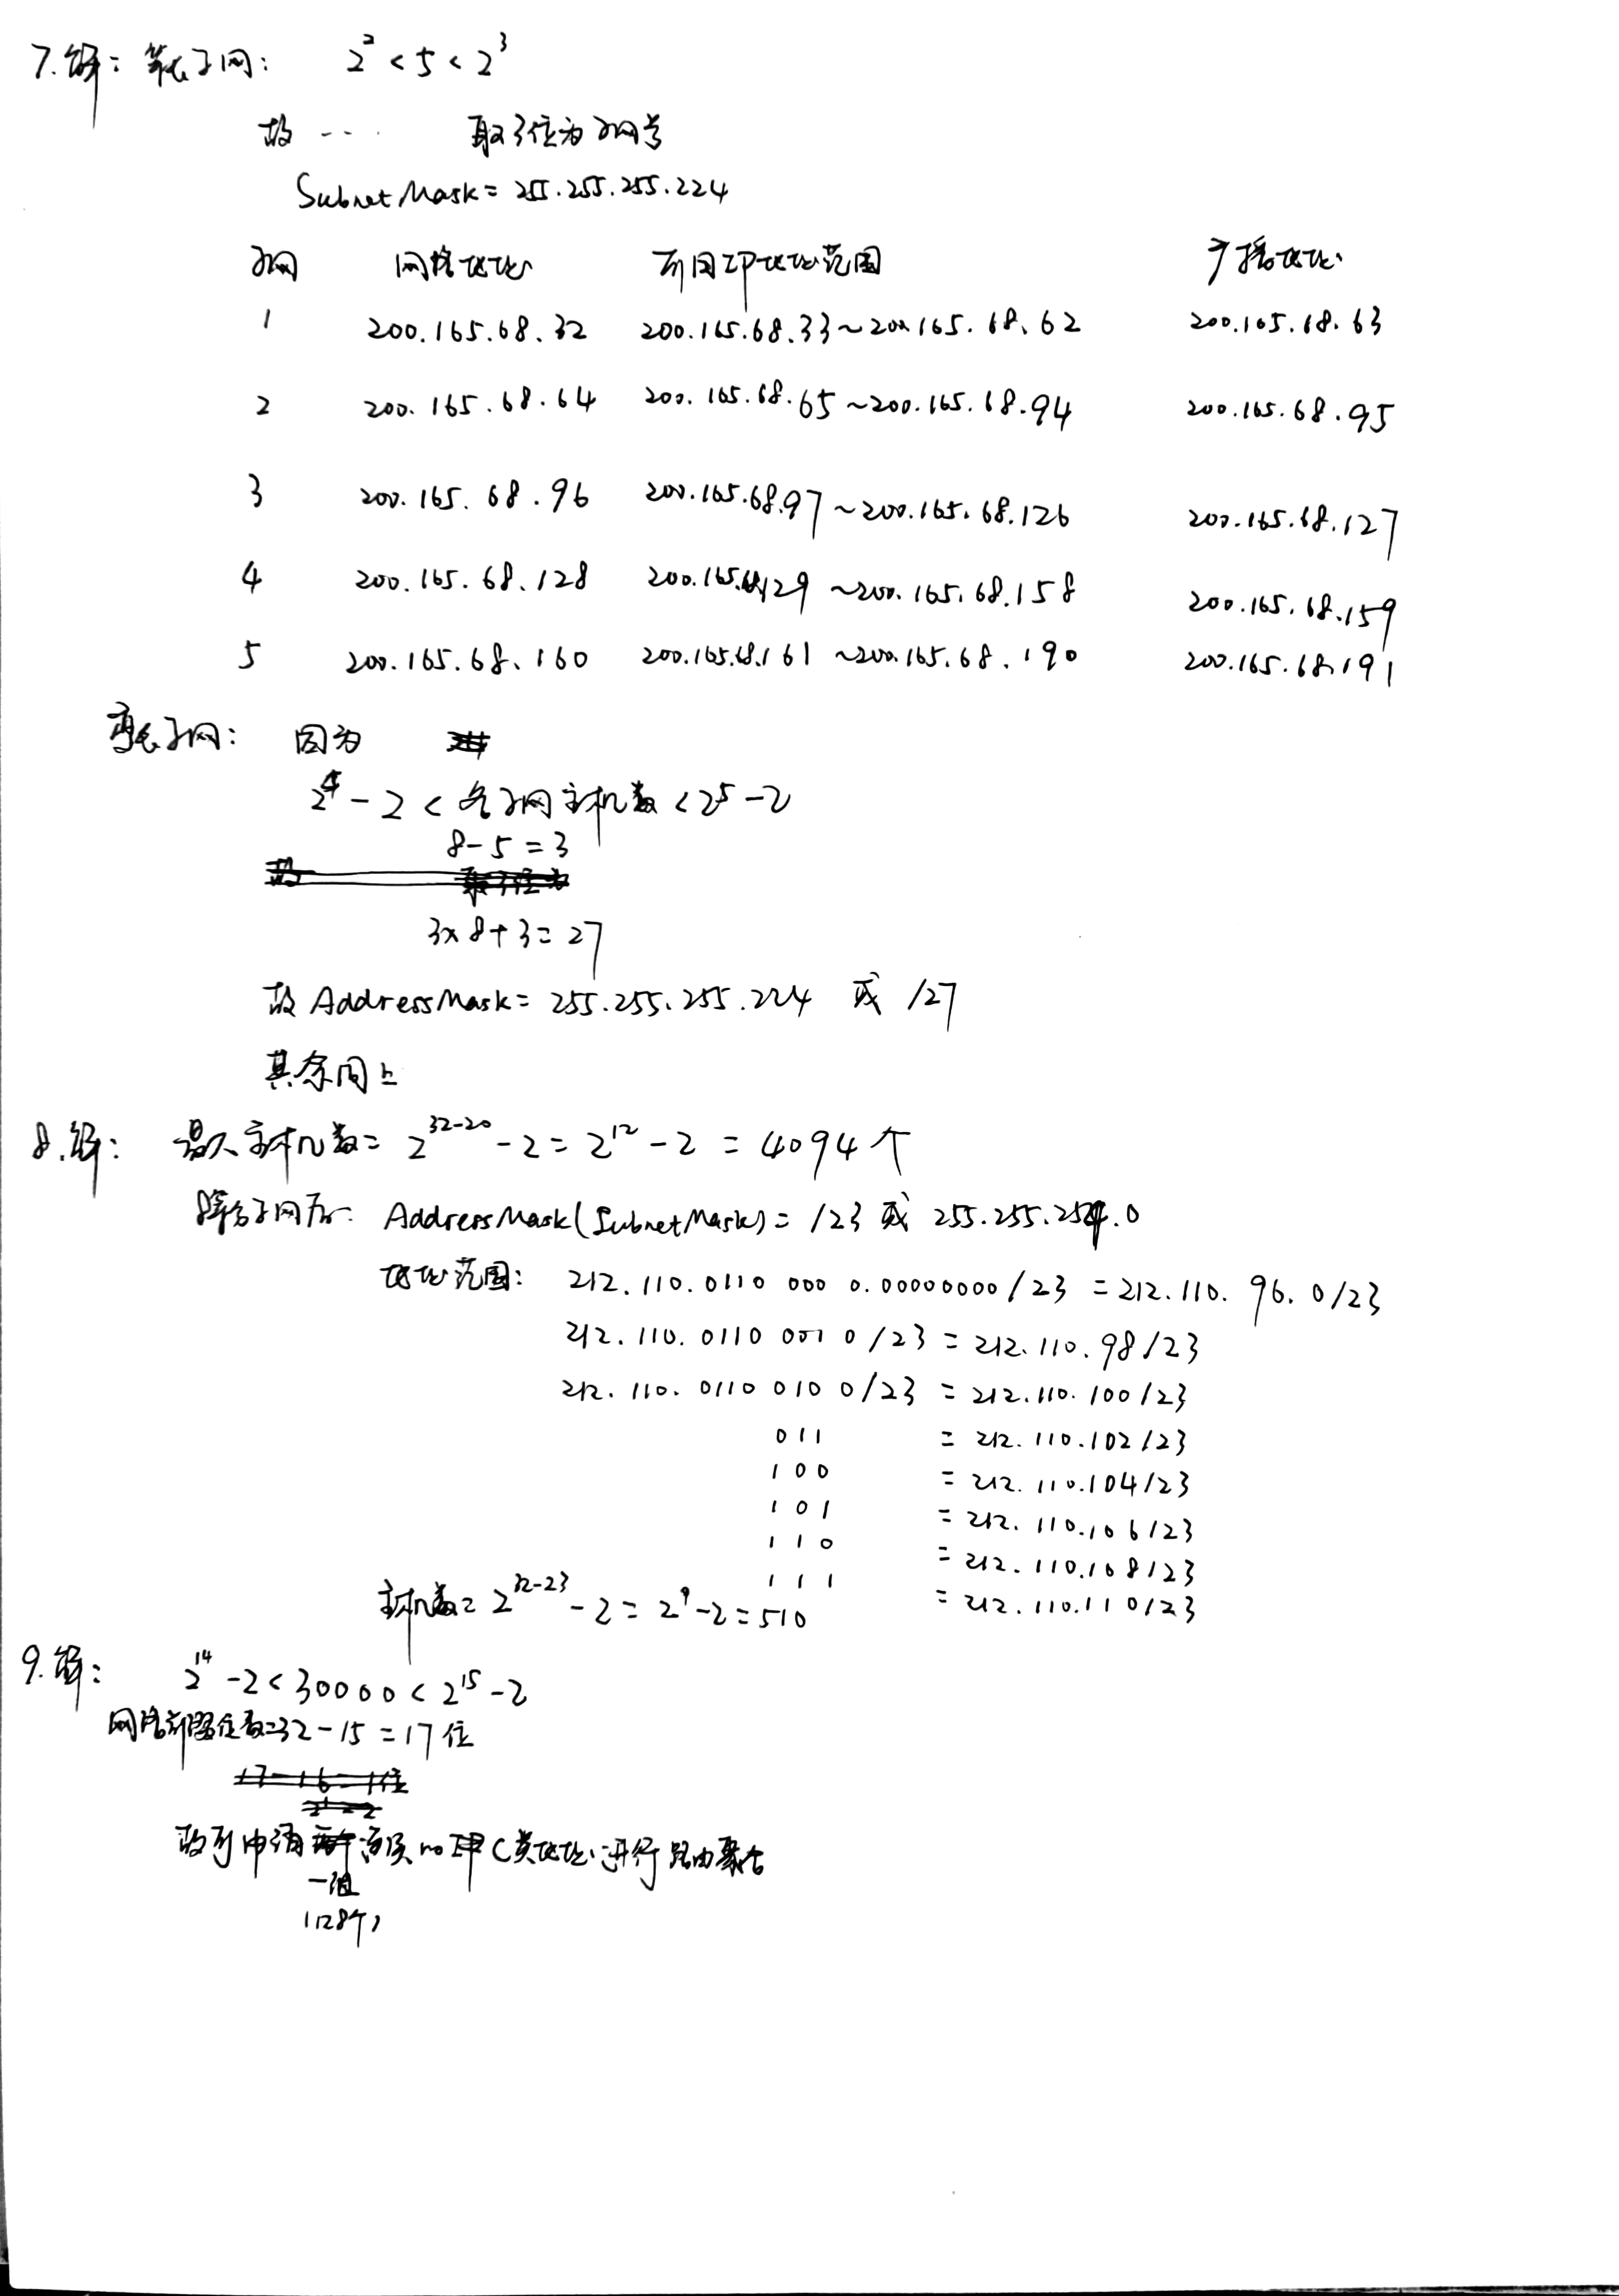 7.解：等长子网： 2² < 5 < 2³
故 ... 取3位为子网号
SubnetMask = 255.255.255.224
子网 网络地址 可用IP地址范围 广播地址
1 200.165.68.32 200.165.68.33~200.165.68.62 200.165.68.63
2 200.165.68.64 200.165.68.65~200.165.68.94 200.165.68.95
3 200.165.68.96 200.165.68.97~200.165.68.126 200.165.68.127
4 200.165.68.128 200.165.68.129~200.165.68.158 200.165.68.159
5 200.165.68.160 200.165.68.161~200.165.68.190 200.165.68.191
变长子网： 因为
2⁴-2 < 各子网主机数 < 2⁵-2
8-5=3
3×8+3=27
故 AddressMask = 255.255.255.224 或 /27
其余同上
8.解： 最大主机数 = 2³²⁻²⁰-2 = 2¹²-2 = 4094个
划分子网后： AddressMask(SubnetMask) = /23 或 255.255.254.0
地址范围： 212.110.0110 000 0.00000000/23 = 212.110.96.0/23
212.110.0110 001 0/23 = 212.110.98/23
212.110.0110 010 0/23 = 212.110.100/23
011 = 212.110.102/23
100 = 212.110.104/23
101 = 212.110.106/23
110 = 212.110.108/23
111 = 212.110.110/23
主机数 = 2³²⁻²³-2 = 2⁹-2 = 510
9.解： 2¹⁴-2 < 30000 < 2¹⁵-2
网络前缀位数=32-15=17位
17-16=1位
故可申请 连续的 C类地址进行路由聚合
一组
(128个)